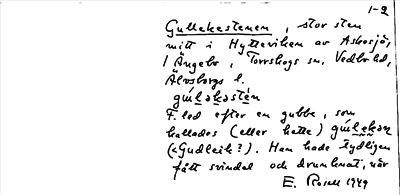 1-2
Gullekastenen, stor sten
mitt i Hytteviken av Askesjö,
1 Ängebo, Torrskogs sn, Vedbo hd,
Älvsborgs l.
F. led efter en gubbe, som
kallades (eller hette)
(< Gudleik?). Han hade tydligen
fått svindel och drunknat, när
E. Rosell 1949